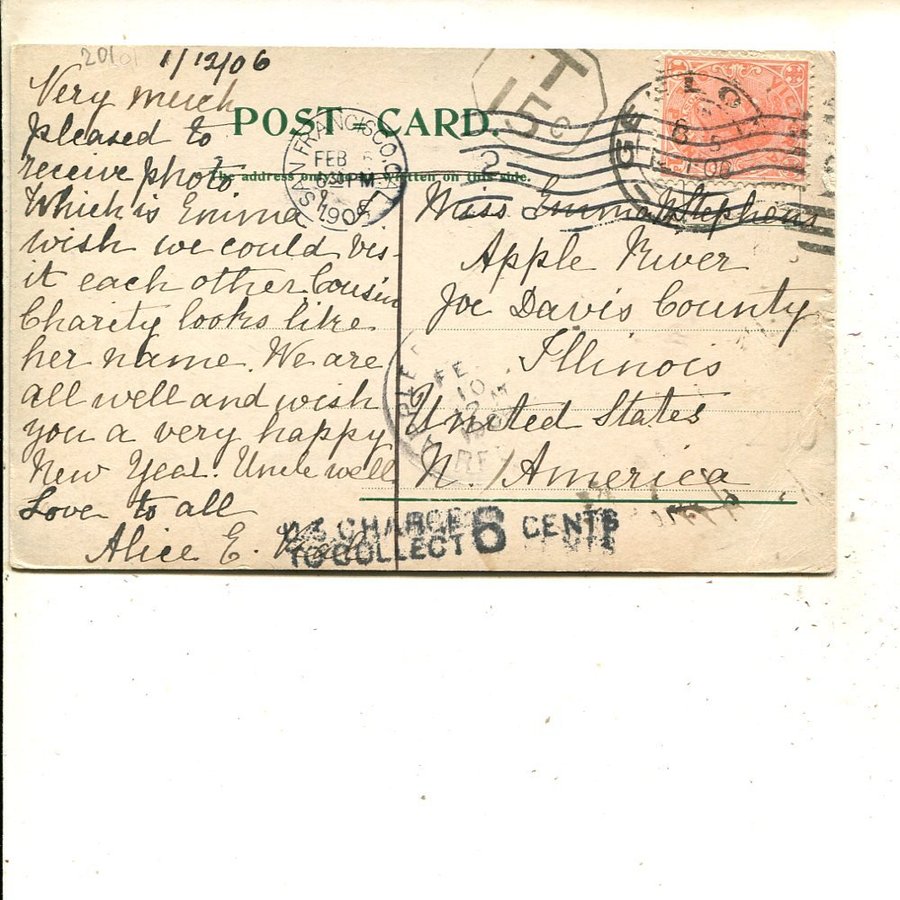 1/12/06
Very much
pleased to
receive photo.
Which is Emma
wish we could vis-
it each other. Cousin
Charity looks like
her name. We are
all well and wish
you a very happy
New Year. Uncle well
Love to all
Alice E.
POST CARD.
The address only to be written on this side.
SAN FRANCISCO, CAL.
FEB
630 PM
1906
T
15 c
GEELONG
06
Miss Emma Stephens
Apple River
Joe Davis County
Illinois
United States
N. America
APPLE
FE
10
U.S. CHARGE
TO COLLECT 6 CENTS